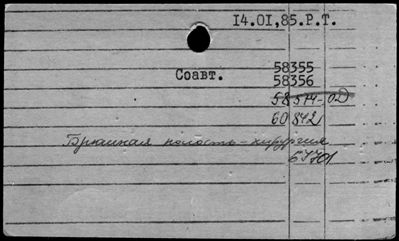 14.01,85.Р.Т.
Соавт. 58355
58356
58574-ОД
60842
Брюшная полость-хирургия
67701